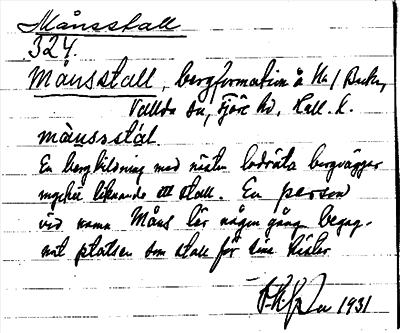 Månsstall
324.
Månsstall, bergformation å Ha / Backa,
Vallda sn, Fjäre hd, Hall. l.
månsstal.
En bergbildning med nästan lodräta bergväggar
mycket liknande ett stall. En person
vid namn Måns lär någon gång begag-
nat platsen som stall för sina hästar
1931